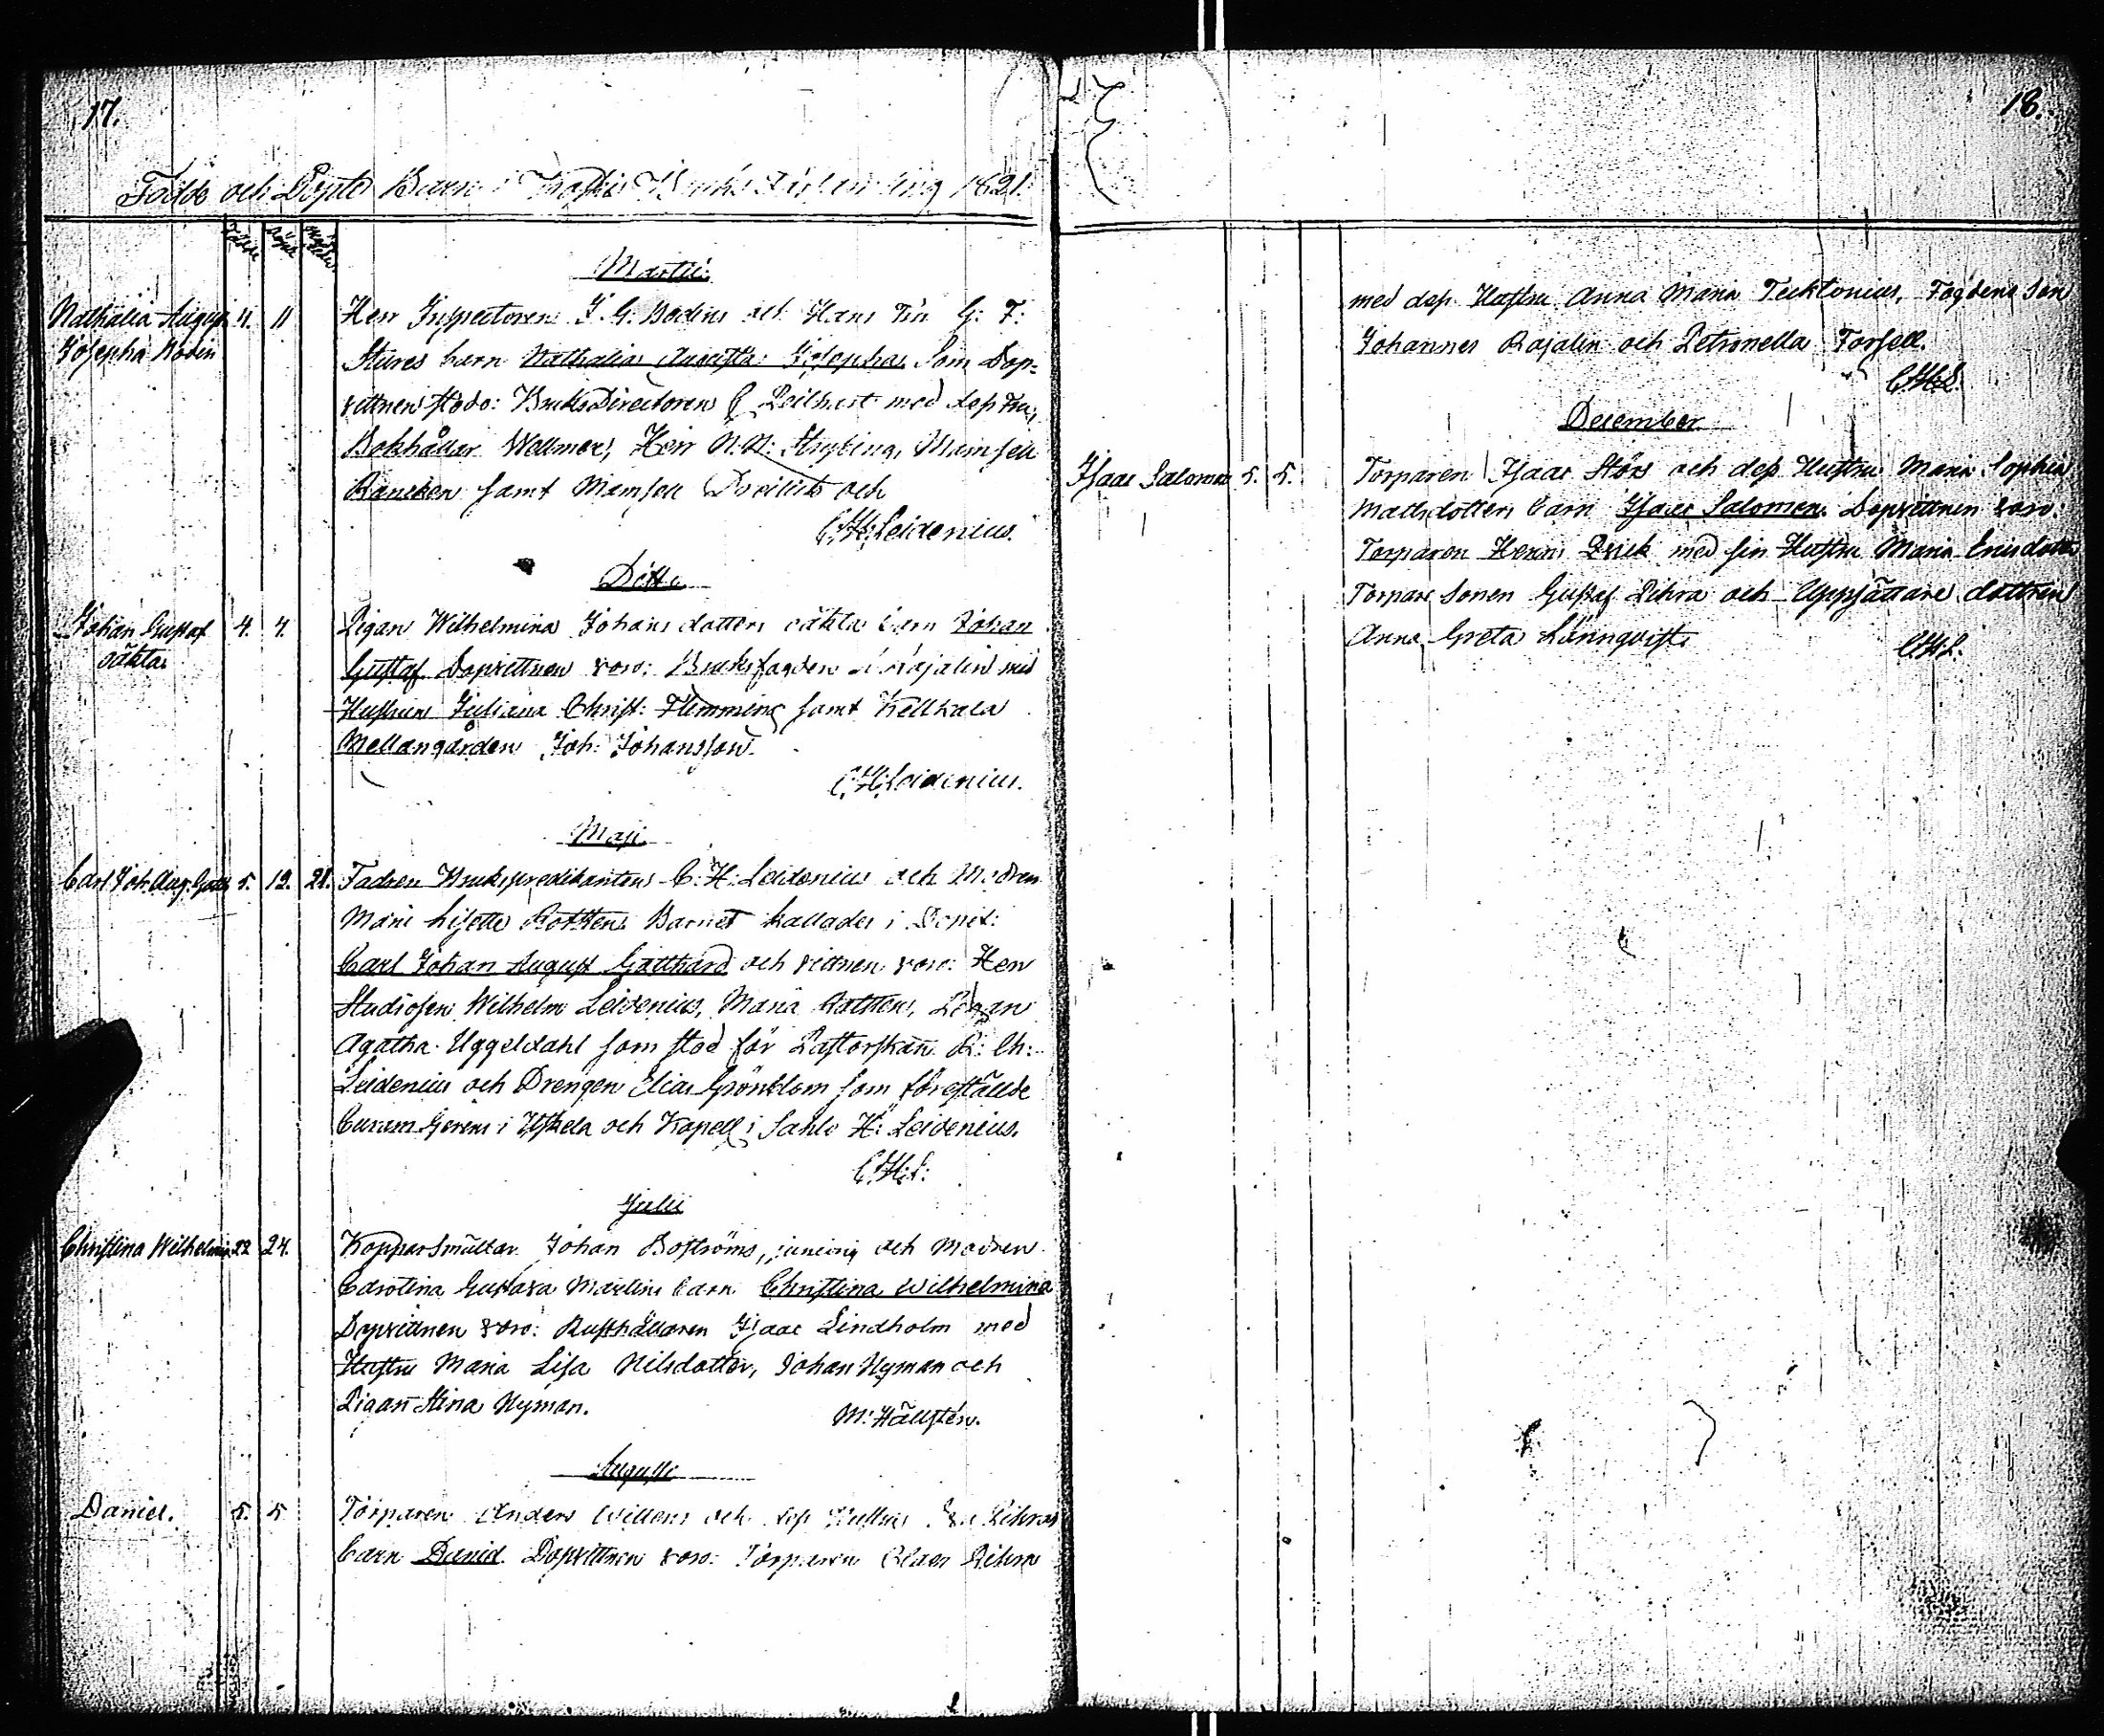 17.
Födde och Döpte Barn i Bruks Församling 1821.
Födde Döpte
Martii.
Nathalia August 11. 11 Herr Inspectoren J. G: Bodins och Hans Fru G: F:
Josepha Bodin
Stures barn Nathalia Augusta Josepha Som Dop-
vittnen stodo: BruksDirectoren med dess Fru,
Bokhållar Wellmer, Herr N. N: Mamsell
samt Mamsell och
C. H: Leidenius.
Ditto
Johan Gustaf 4. 4. Pigan Wilhelmina Johans dotters oäkta barn Johan
oäkta
Gustaf Dopvittnen voro: Bruksfogden Rajalin med
Hustrun Juliana Christ: Flemming samt
Mellangården Joh: Johansson.
C. H: Leidenius.
Maji
Carl Joh. Aug. Gotth 5. 12. 21. Fadren Brukspredikanten C: H: Leidenius och Modren
Maria Lisette Barnet kallades i Dopet:
Carl Johan August Gotthard och vittnen voro: Herr
Studiosen Wilhelm Leidenius, Maria Pigan
Agatha Uggeldahl som stod för Pastorskan R: Ch:
Leidenius och Drengen Elias Grönblom som föreställde
Curam Gerens i Uskela och Kapell: i Sahlo H: Leidenius.
C. H: L:
Julii
Christina Wilhelmin 22 24. Kopparsmältar Johan Boströms, junioris och Modren
Carolina Gustava Maxlins barn Christina Wilhelmina
Dopvittnen voro: Rusthållaren Isaac Lindholm med
Hustru Maria Lisa Nilsdotter, Johan Nyman och
Pigan Stina Nyman. M: Hällstén.
Augusti
Daniel. 5. 5 Torparen Anders Willens och dess Hustru Eva Pihras
barn Daniel Dopvittnen voro: Torparen Claes Pihra
18.
med dess Hustru Anna Maria Tecktonius, Fogdens Son
Johannes Rajalin och Petronella Forsell.
C. H: L.
December
Isaac Salomon 5. 5. Torparen Isaac Störs och dess Hustru Maria Sophia
Mattsdotters barn Isaac Salomon. Dopvittnen voro:
Torparen Henric med sin Hustru Maria Ericsdotter
Torpare Sonen Gustaf Pihra och Uppsättare dottren
Anna Greta Lönnqvist.
C. H: L.